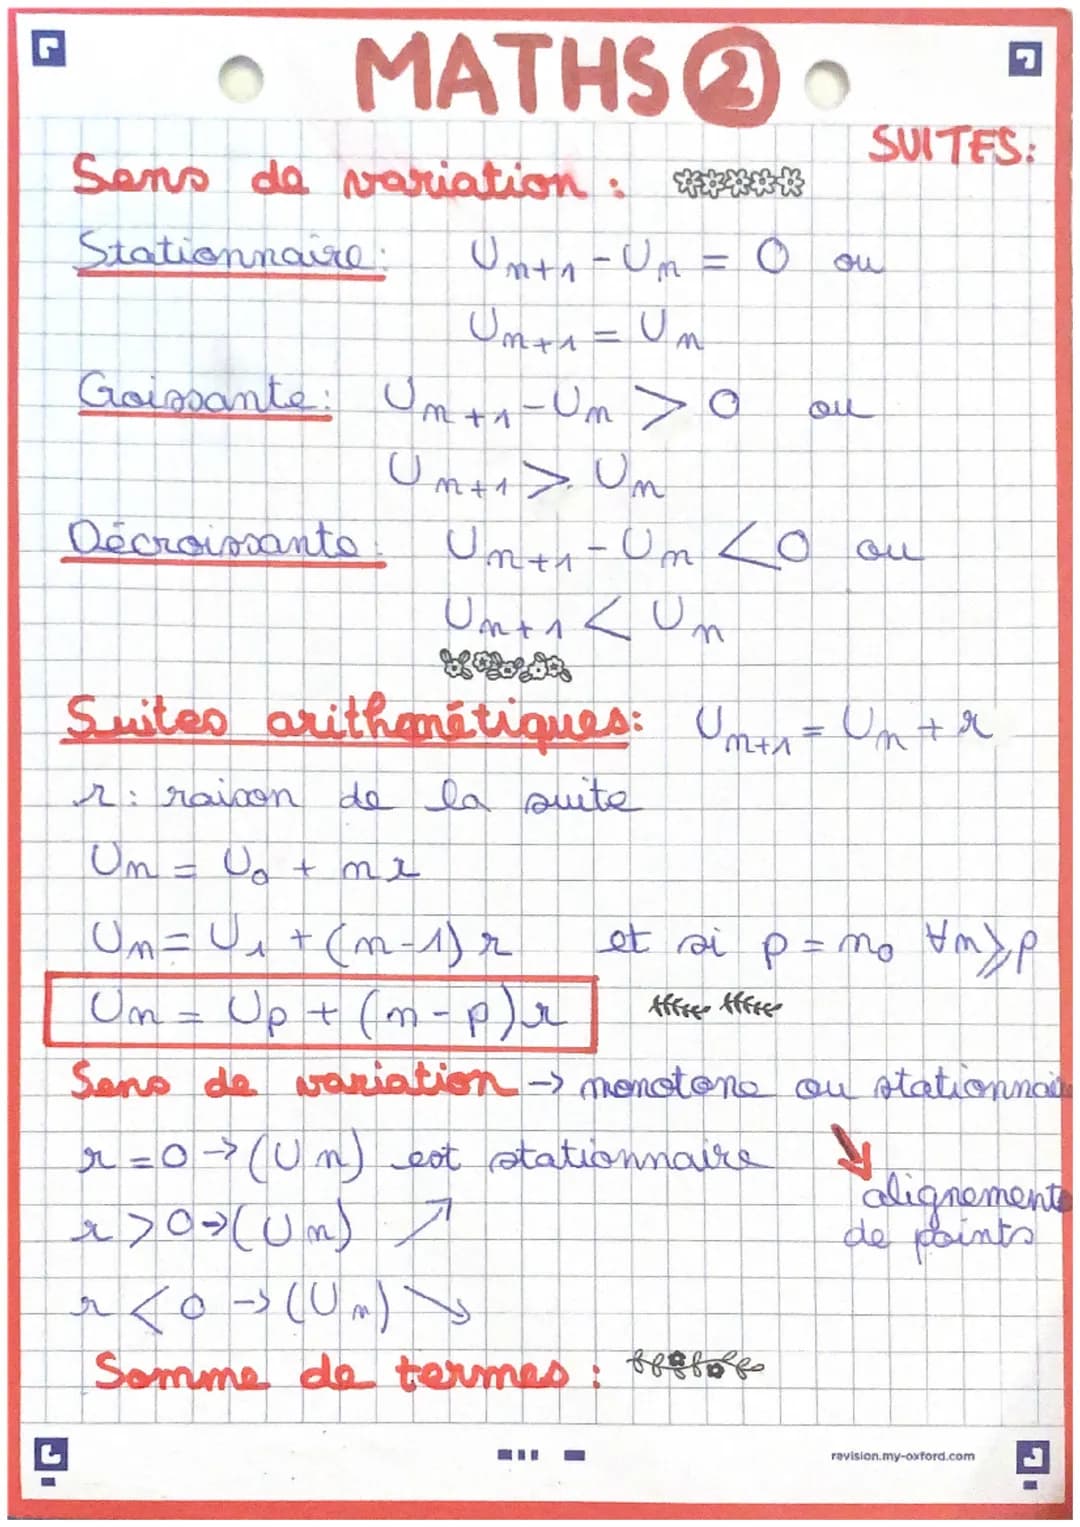 MATHS ②
SUITES:
Sens de variation :
Stationnaire: Un+1 - Un = 0 ou
Un+1 = Un
Croissante: Un+1 - Un > 0 ou
Un+1 > Un
Décroissante: Un+1 - Un < 0 ou
Un+1 < Un
Suites arithmétiques: Un+1 = Un + r
r: raison de la suite
Un = U0 + nr
Un = U1 + (n-1) r et si p = n0 ∀n⩾p
Un = Up + (n-p)r
Sens de variation -> monotone ou stationnai
r = 0 -> (Un) est stationnaire
alignements
de points
r > 0 -> (Un) ↗
r < 0 -> (Un) ↘
Somme de termes :
revision.my-oxford.com